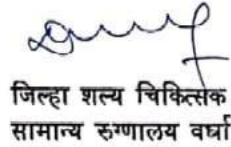 जिल्हा शल्य चिकित्सक
सामान्य रुग्णालय वर्धा